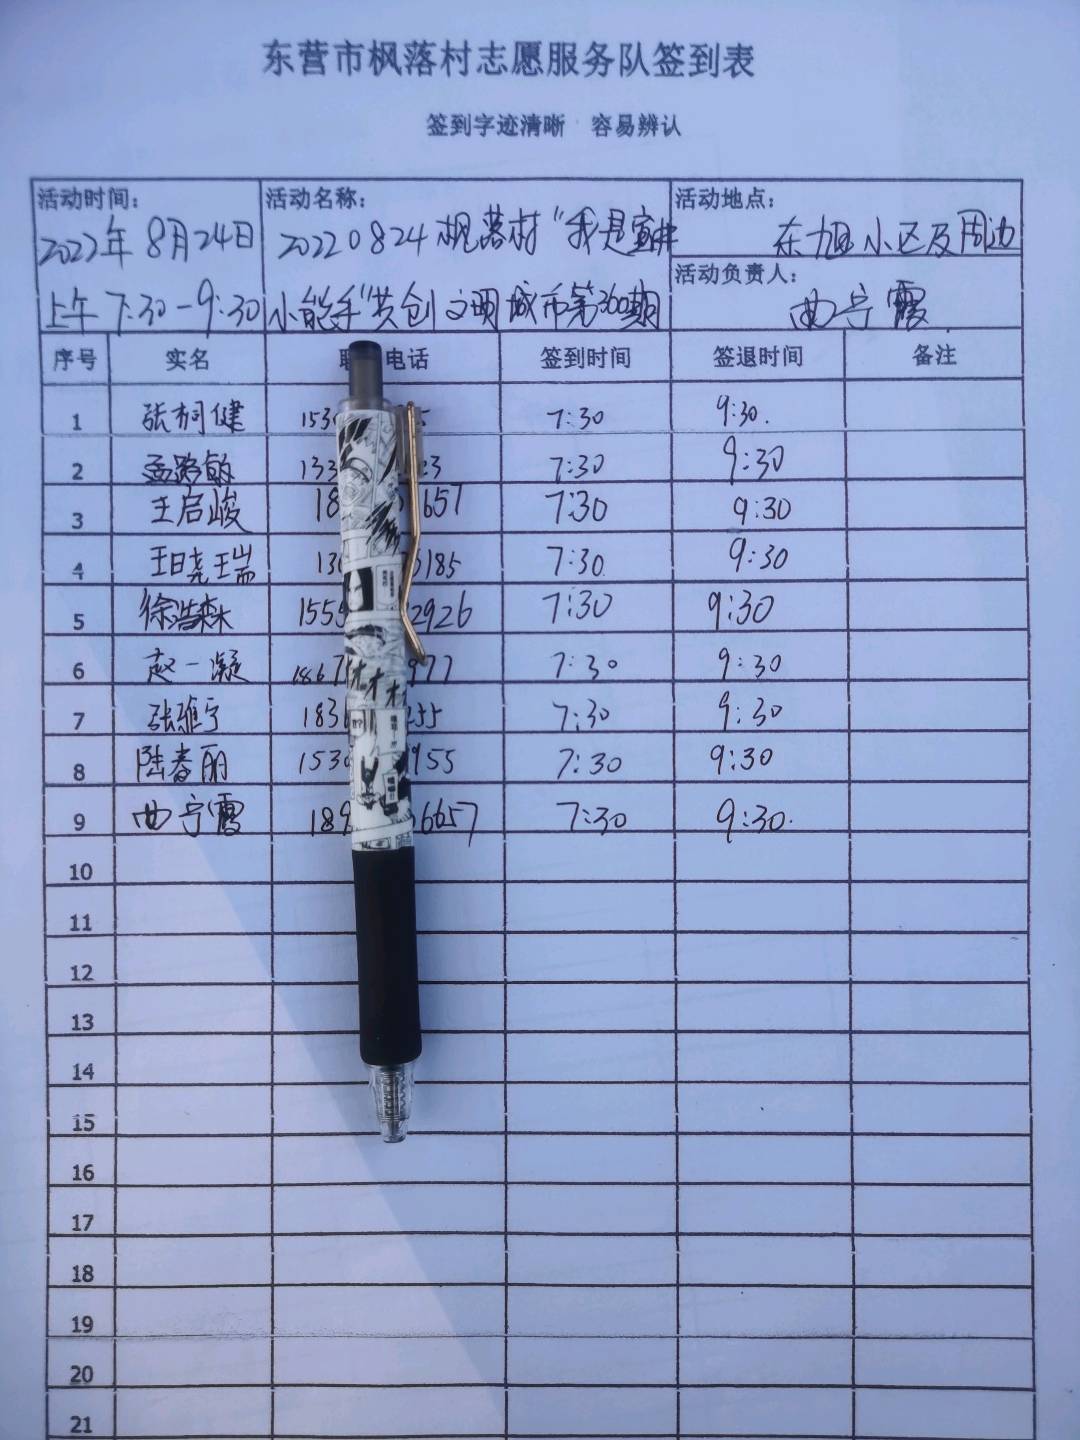 东营市枫落村志愿服务队签到表
签到字迹清晰 容易辨认
活动时间：
2022年8月24日
上午7:30-9:30
活动名称：
20220824枫落村“我是宣讲
小能手”共创文明城市第360期
活动地点：
东旭小区及周边
活动负责人：
曲宁霞
序号 实名 电话 签到时间 签退时间 备注
1 张桐健 153 5 7:30 9:30.
2 孟路敏 133 23 7:30 9:30
3 王启峻 18 657 7:30 9:30
4 王晓瑞 13 185 7:30 9:30
5 徐浩森 1555 2926 7:30 9:30
6 赵一凝 1867 977 7:30 9:30
7 张雅宁 183 255 7:30 9:30
8 陆春丽 153 955 7:30 9:30
9 曲宁霞 189 6657 7:30 9:30.
10
11
12
13
14
15
16
17
18
19
20
21